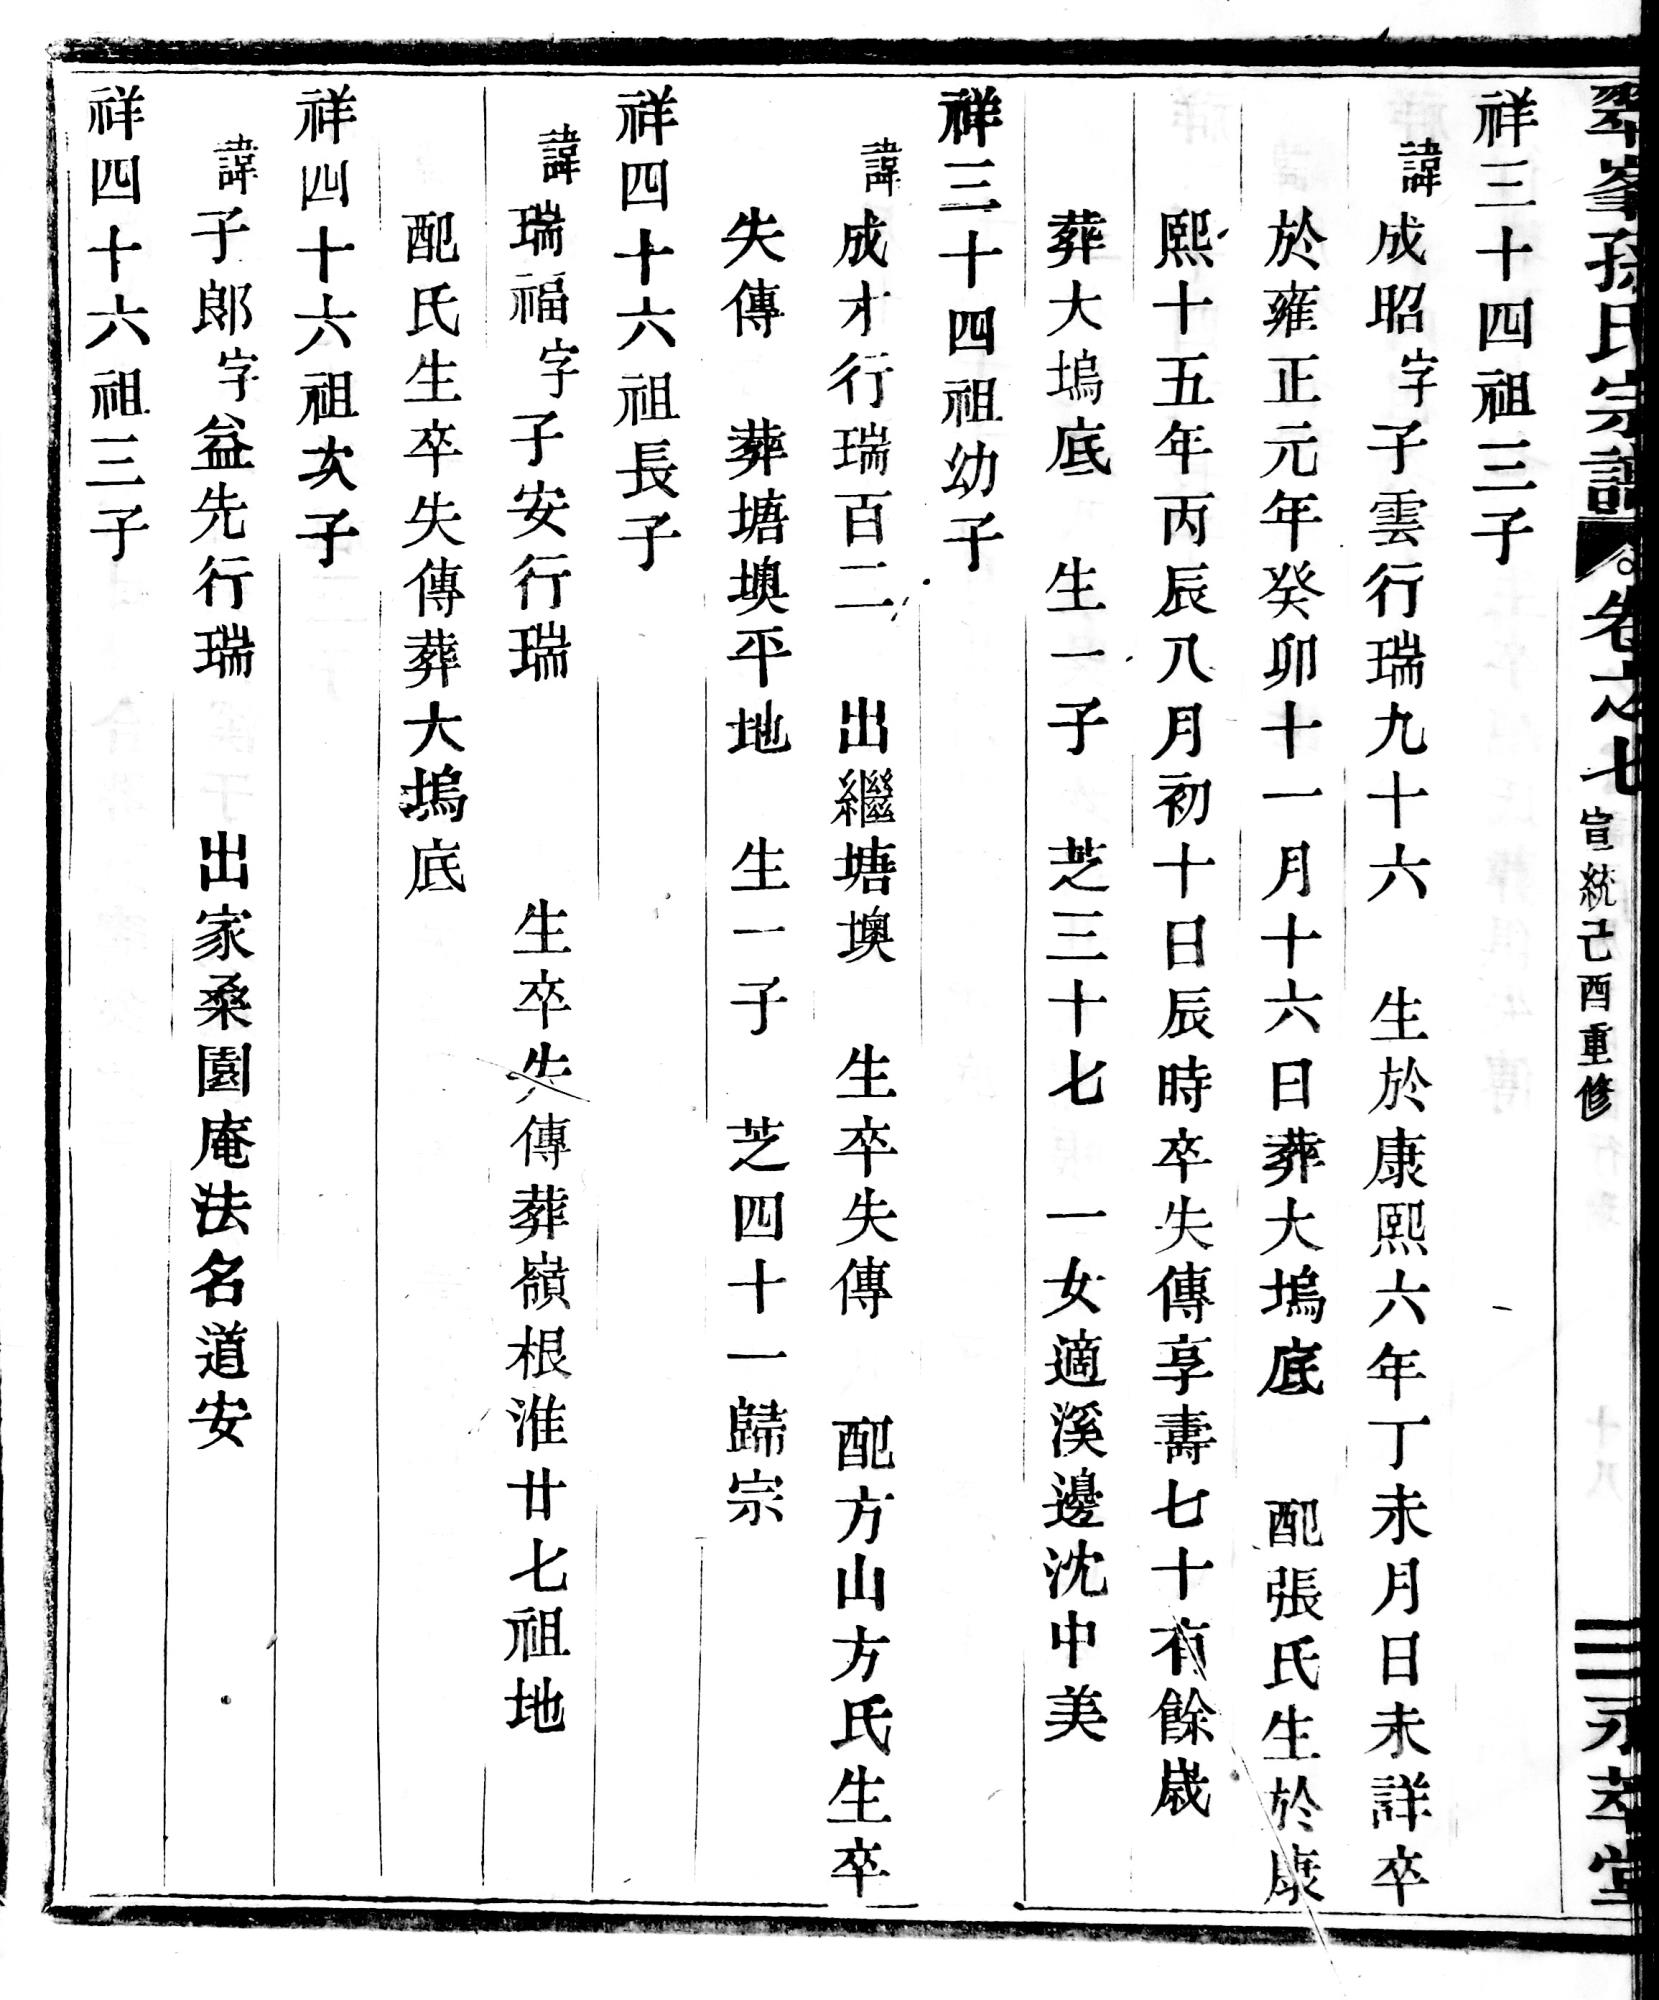 翠峯孫氏宗譜 卷之七 宣統己酉重修 永萃堂
祥三十四祖三子
諱成昭字子雲行瑞九十六 生於康熙六年丁未月日未詳卒
於雍正元年癸卯十一月十六日葬大塢底 配張氏生於康
熙十五年丙辰八月初十日辰時卒失傳享壽七十有餘歲
葬大塢底 生一子 芝三十七 一女適溪邊沈中美
祥三十四祖幼子
諱成才行瑞百二 出繼塘墺 生卒失傳 配方山方氏生卒
失傳 葬塘墺平地 生一子 芝四十一歸宗
祥四十六祖長子
諱瑞福字子安行瑞 生卒失傳葬嶺根淮廿七祖地
配氏生卒失傳葬大塢底
祥四十六祖次子
諱子郎字益先行瑞 出家桑園庵法名道安
祥四十六祖三子